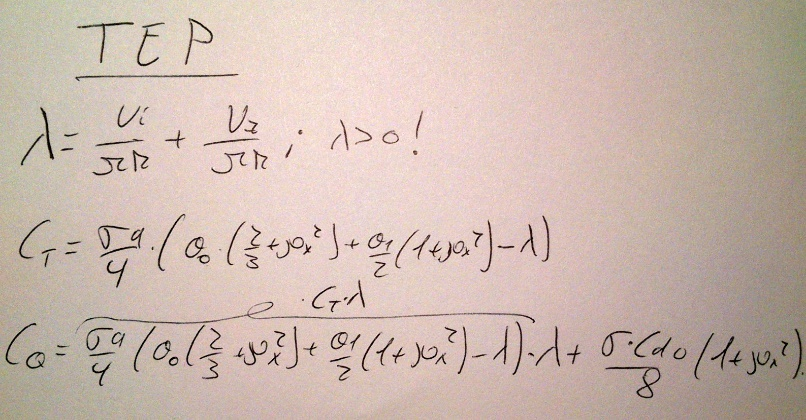 TEP
λ = Vi/ΩR + Vz/ΩR ; λ>0!
C_T = σa/4 · (θ₀ · (2/3 + μₓ²) + θ₁/2 (1+μₓ²) - λ)
C_T·λ
C_Q = σa/4 (θ₀ (2/3 + μₓ²) + θ₁/2 (1+μₓ²) - λ) · λ + σ·Cdo/8 (1+μₓ²).